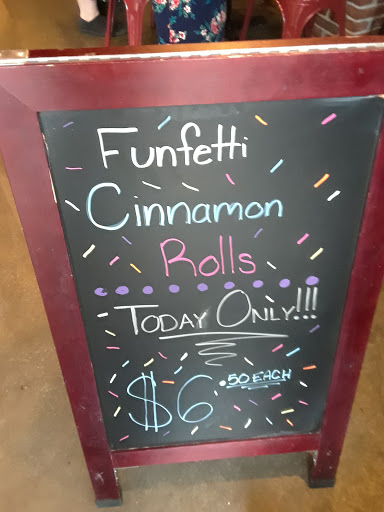 Funfetti
Cinnamon
Rolls
TODAY ONLY!!!
$6.50 EACH